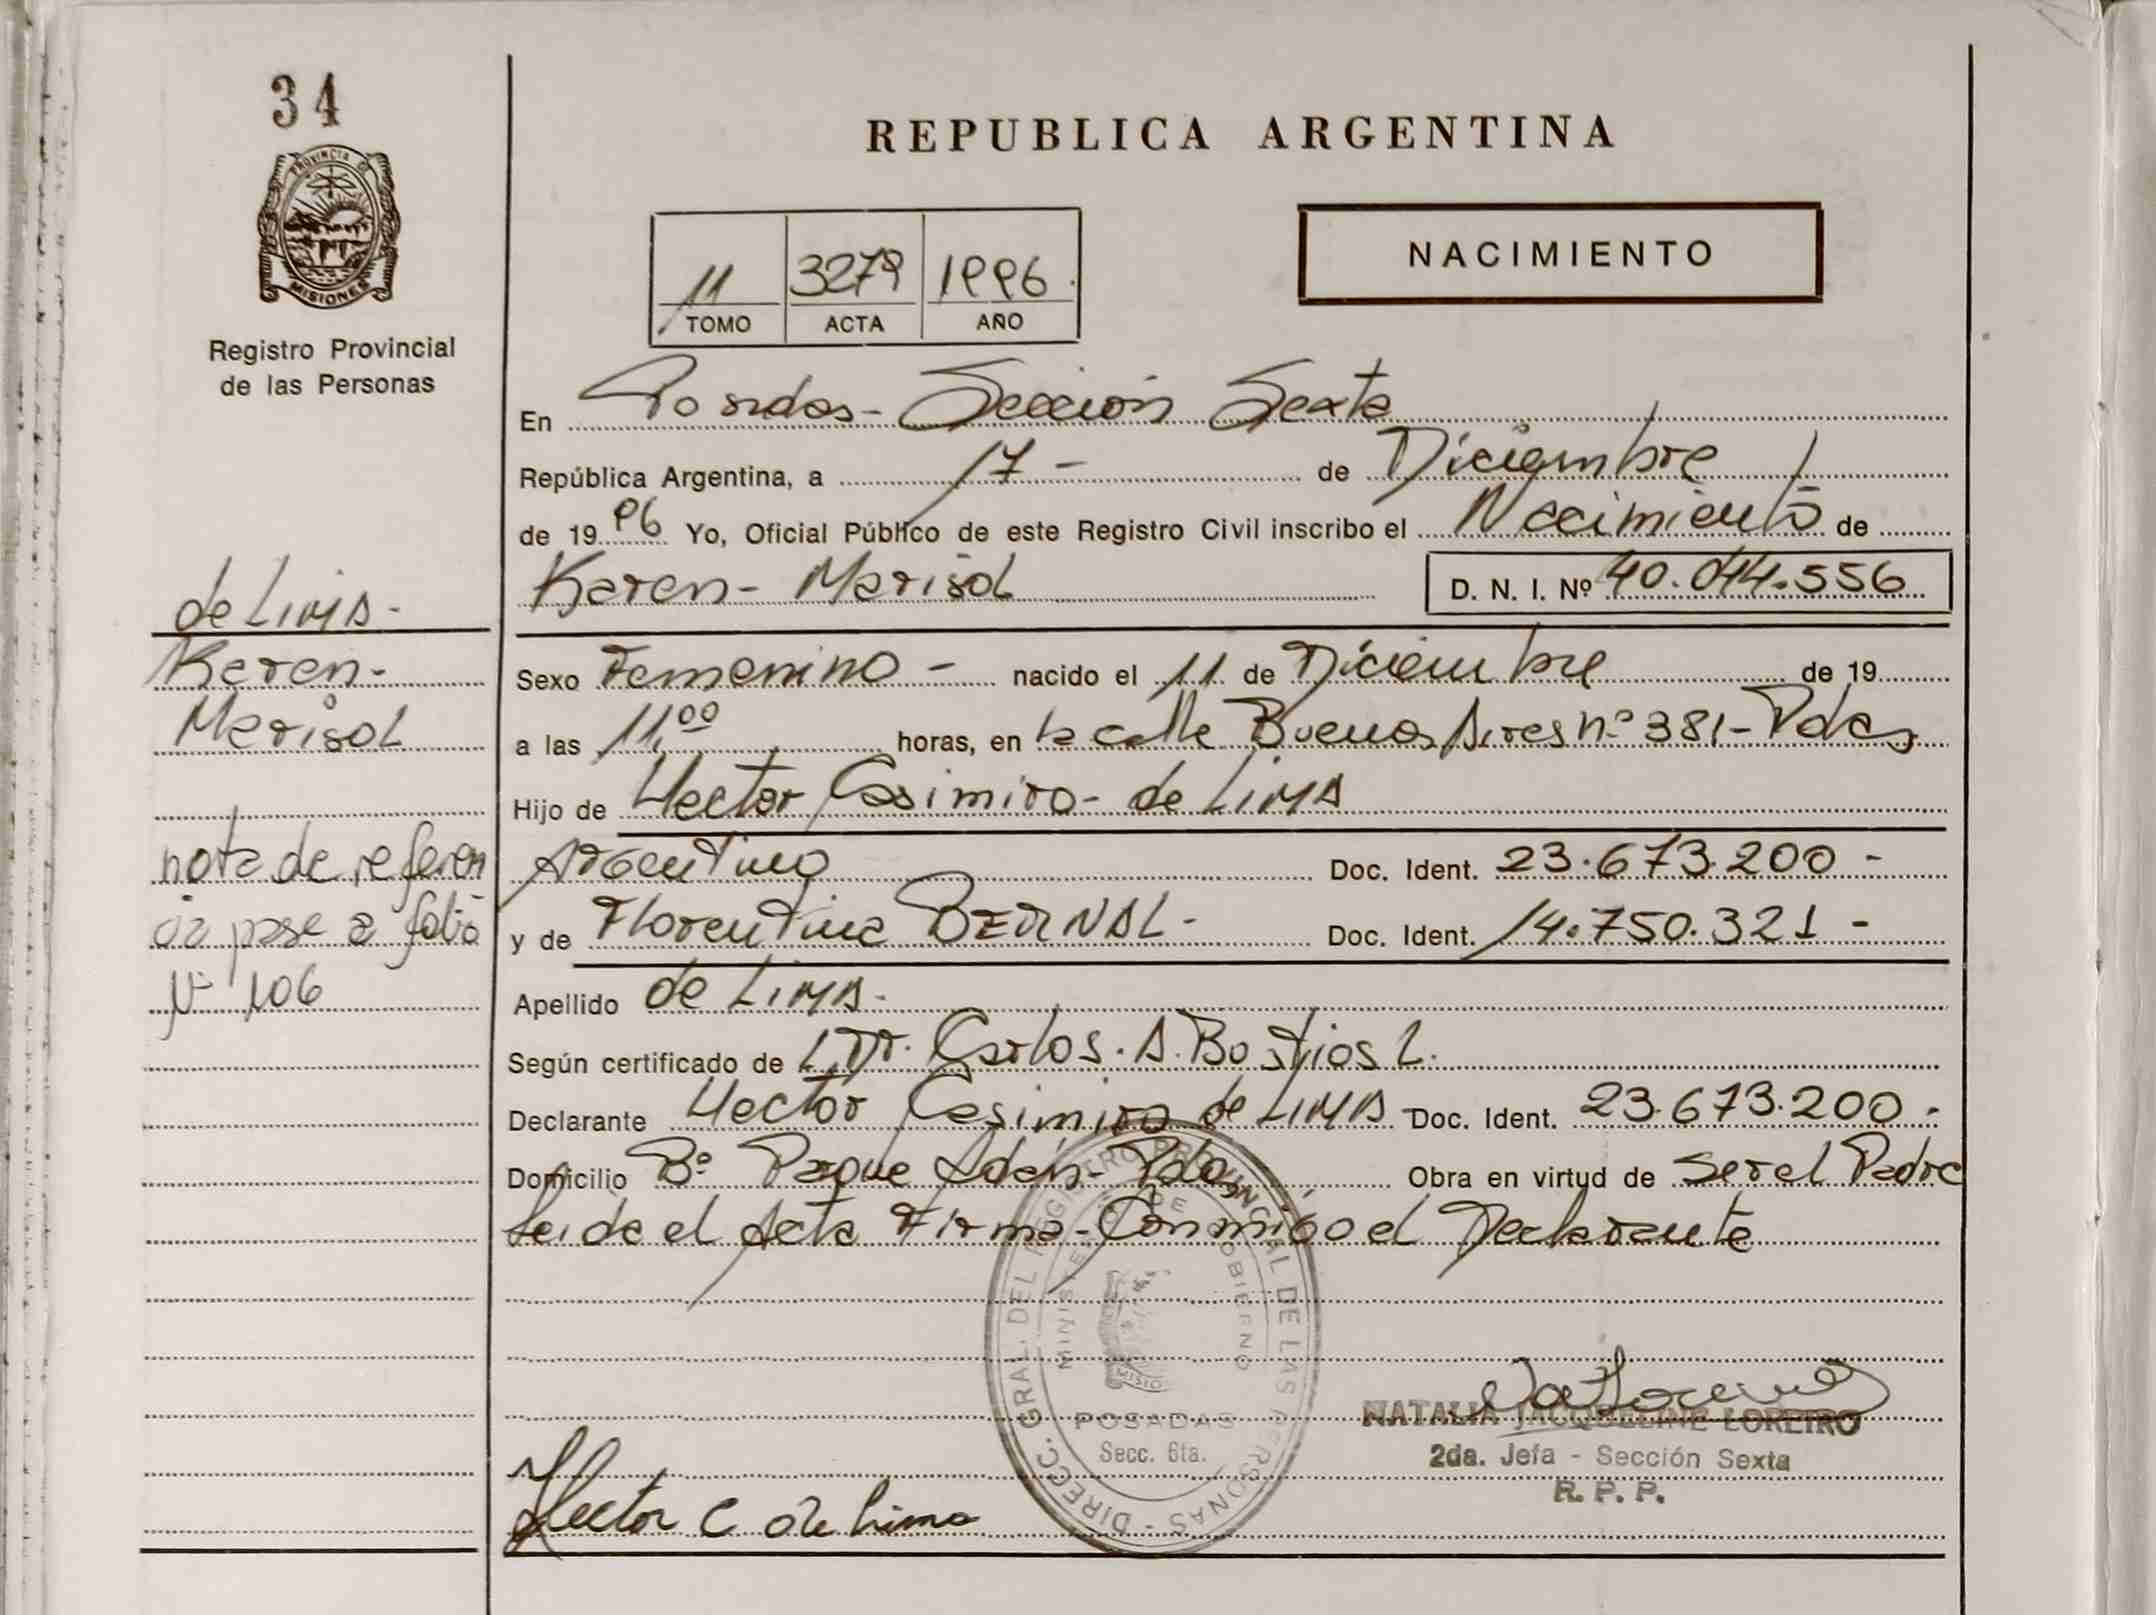 34
PROVINCIA DE
MISIONES
Registro Provincial
de las Personas
REPUBLICA ARGENTINA
NACIMIENTO
11 3279 1996
TOMO ACTA AÑO
En Posadas - Sección Sexta
República Argentina, a 17 - de Diciembre
de 19 96 Yo, Oficial Público de este Registro Civil inscribo el Nacimiento de
Karen - Marisol D. N. I. Nº 40.044.556
de LIMA -
Karen -
Marisol
nota de referen
cia pase a folio
Nº 106
Sexo Femenino - nacido el 11 de Diciembre de 19
a las 11,00 horas, en la calle Buenos Aires nº 381 - Pdas
Hijo de Hector Casimiro - de LIMA
Argentino Doc. Ident. 23.673.200 -
y de Florentina BERNAL - Doc. Ident. 14.750.321 -
Apellido de LIMA -
Según certificado de Dr. Carlos. A. L.
Declarante Hector Casimiro de LIMA - Doc. Ident. 23.673.200 -
Domicilio Bº Parque Adam - Pdas, Obra en virtud de ser el Padre
leida el Acta Firma - Conmigo el Declarante
DIRECC. GRAL. DEL REGISTRO PROVINCIAL DE LAS PERSONAS -
MINISTERIO DE GOBIERNO
POSADAS
Secc. 6ta.
NATALIA JACQUELINE LOREIRO
2da. Jefa - Sección Sexta
R. P. P.
Hector C de Lima